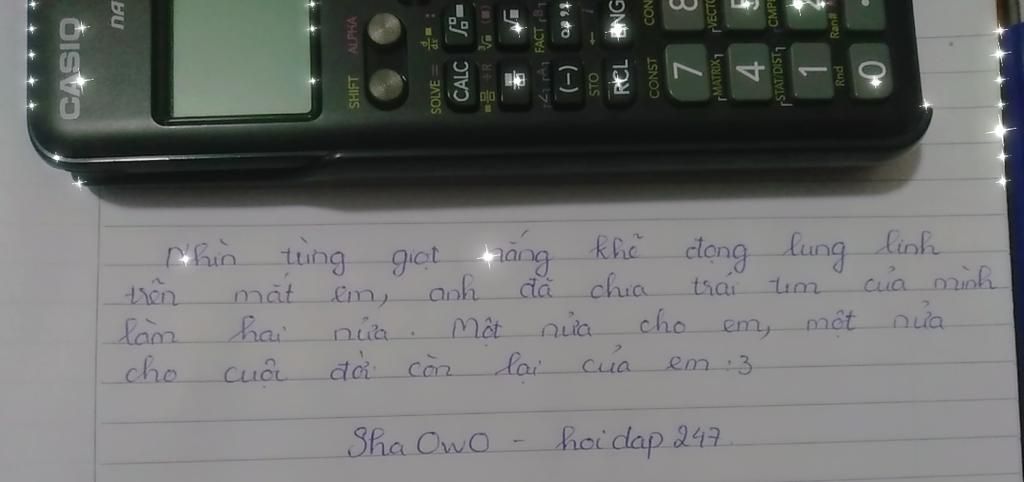 CASIO
NA
SHIFT
ALPHA
SOLVE =
CALC
FACT
(−)
STO
RCL
ENG
CONST
CON
7
8
MATRIX
VECT
4
5
STAT/DIST
CMPL
1
2
Rnd
Ran#
0
Nhìn từng giọt nắng khẽ đọng lung linh
trên mắt em, anh đã chia trái tim của mình
làm hai nửa. Một nửa cho em, một nửa
cho cuộc đời còn lại của em :3
Sha OwO - hoidap 247